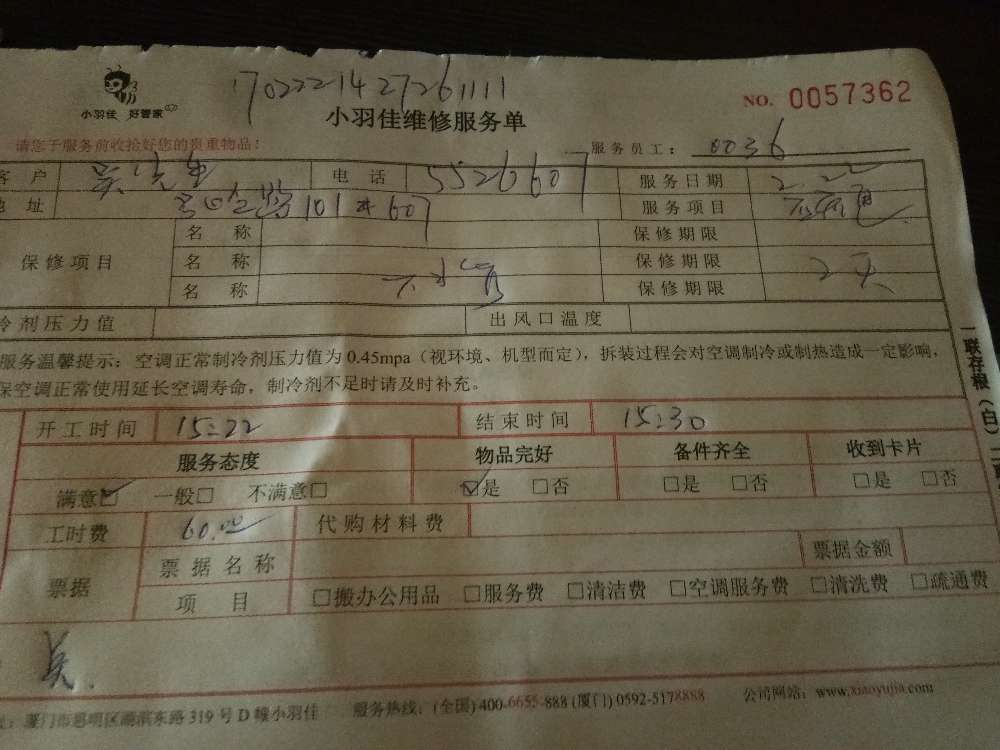 1702221427261111
小羽佳 好管家
小羽佳维修服务单
NO. 0057362
请您于服务前收拾好您的贵重物品！
服务员工： 0036
客 户 电 话 5526607 服务日期 2.22
地 址 101# 607 服务项目
保修项目 名 称 保修期限
名 称 下水管 保修期限 2天
名 称 保修期限
冷剂压力值 出风口温度
服务温馨提示：空调正常制冷剂压力值为0.45mpa（视环境、机型而定），拆装过程会对空调制冷或制热造成一定影响，
保空调正常使用延长空调寿命，制冷剂不足时请及时补充。
开工时间 15:22 结束时间 15:30
服务态度 物品完好 备件齐全 收到卡片
满意☑ 一般□ 不满意□ ☑是 □否 □是 □否 □是 □否
工时费 60.00 代购材料费
票据 票据名称 票据金额
项 目 □搬办公用品 □服务费 □清洁费 □空调服务费 □清洗费 □疏通费
吴
厦门市思明区湖滨东路319号D幢小羽佳 服务热线：(全国) 400-6655-888 (厦门) 0592-5178888 公司网站：www.xiaoyujia.com
一联存根（白）